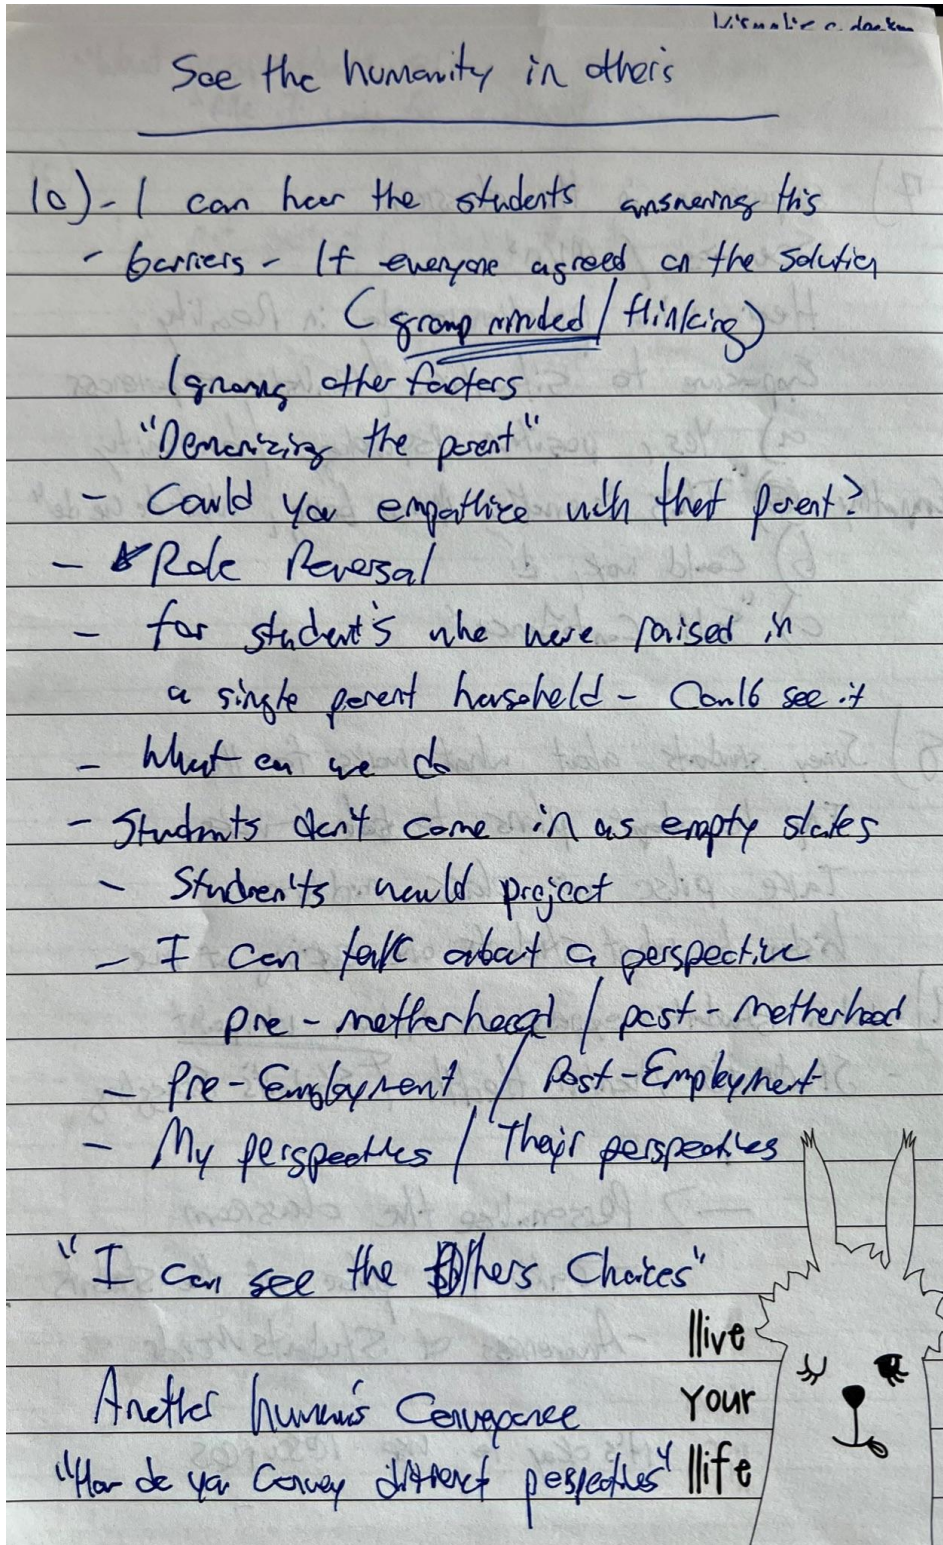 See the humanity in others
10) - I can hear the students answering this
- barriers - If everyone agreed on the solution
(group minded / thinking)
Ignoring other factors
"Demonizing the parent"
- Could you empathize with that parent?
- Role Reversal
- for student's who were raised in
a single parent household - Could see it
- What can we do
- Students don't come in as empty slates
- Studnen'ts would project
- I can talk about a perspective
pre - motherhood / post - motherhood
- Pre - Employment / Post - Employment
- My perspectives / Their perspectives
"I can see the Others Choices"
llive
Another human's Conveyence
your
"How do you convey different perspectives"
llife